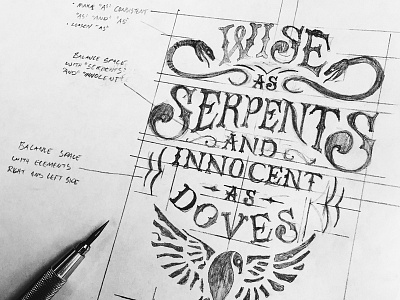 • MAKE "A" CONSISTENT
"AS" "AND" "AS"
• LIGHTEN "AS"
BALANCE SPACE
WITH "SERPENTS"
AND "INNOCENT"
BALANCE SPACE
WITH ELEMENTS
RIGHT AND LEFT SIDE
WISE
AS
SERPENTS
AND
INNOCENT
AS
DOVES